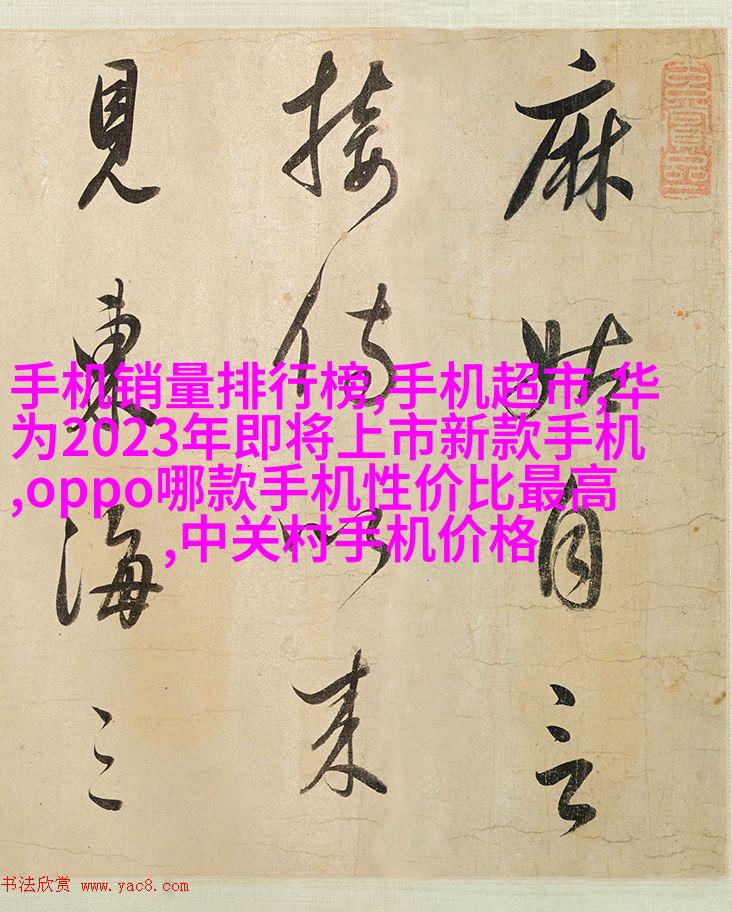 麻姑自言
接侍以来
見東海三
手机销量排行榜,手机超市,华
为2023年即将上市新款手机
,oppo哪款手机性价比最高
,中关村手机价格
书法欣赏 www.yac8.com